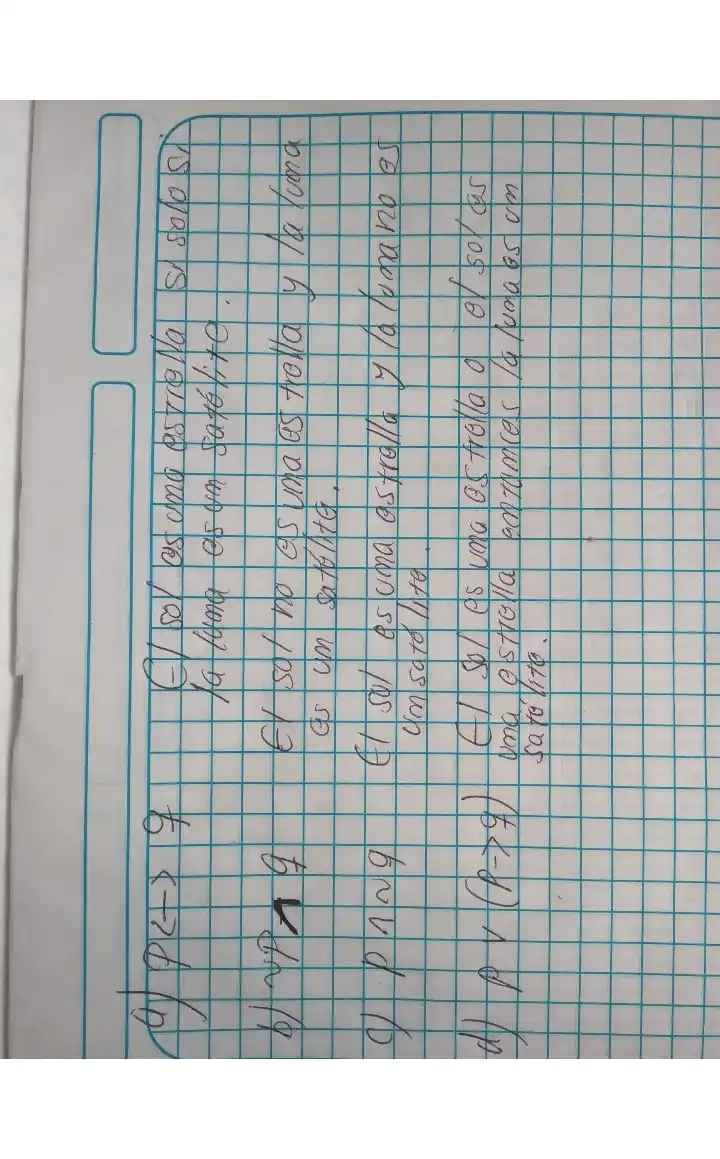 a) P <-> q El sol es una estrella si solo si
la luna es un satélite.
b) ~P ∧ q El sol no es una estrella y la luna
es un satélite.
c) P ∧ ~q El sol es una estrella y la luna no es
un satélite.
d) P v (P -> q) El sol es una estrella o el sol es
una estrella entumces la luna es un
satélite.